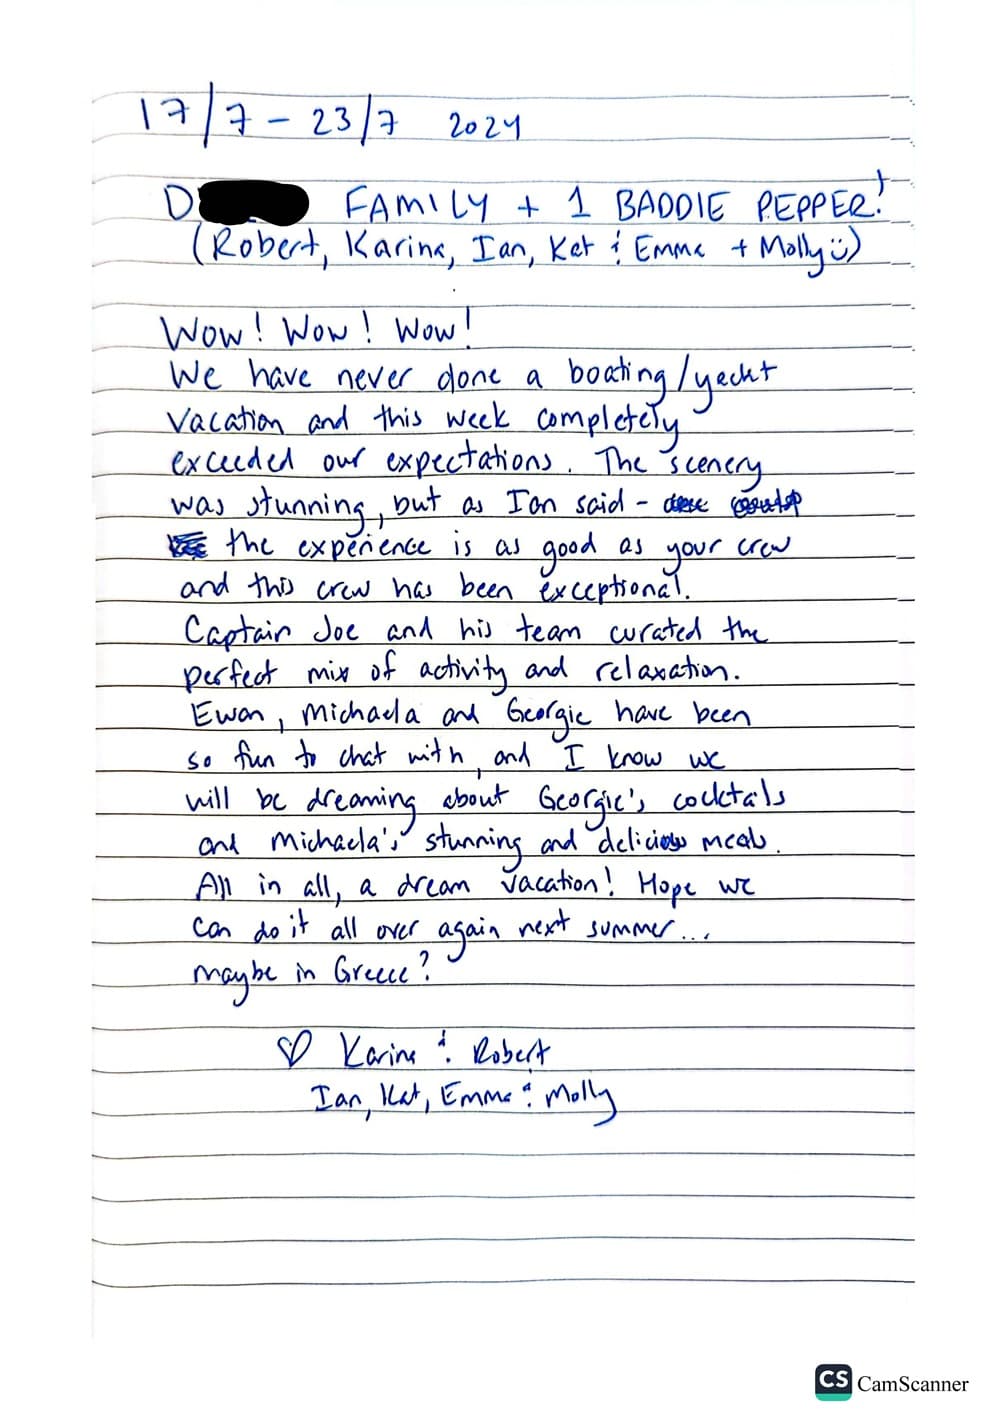 17/7 - 23/7 2024
D FAMILY + 1 BADDIE PEPPER!
(Robert, Karina, Ian, Kat & Emma + Molly :))
Wow! Wow! Wow!
We have never done a boating/yacht
vacation and this week completely
exceeded our expectations. The scenery
was stunning, but as Ian said -
the experience is as good as your crew
and this crew has been exceptional.
Captain Joe and his team curated the
perfect mix of activity and relaxation.
Ewan, Michaela and Georgie have been
so fun to chat with, and I know we
will be dreaming about Georgie's cocktals
and Michaela's stunning and delicious meals.
All in all, a dream vacation! Hope we
can do it all over again next summer...
maybe in Greece?
♡ Karina & Robert
Ian, Kat, Emma & Molly
CS CamScanner